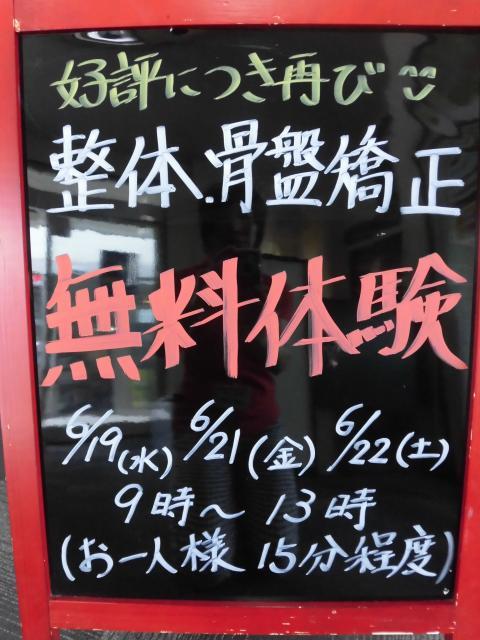 好評につき再び
整体.骨盤矯正
無料体験
6/19(水) 6/21(金) 6/22(土)
9時～13時
(お一人様 15分程度)